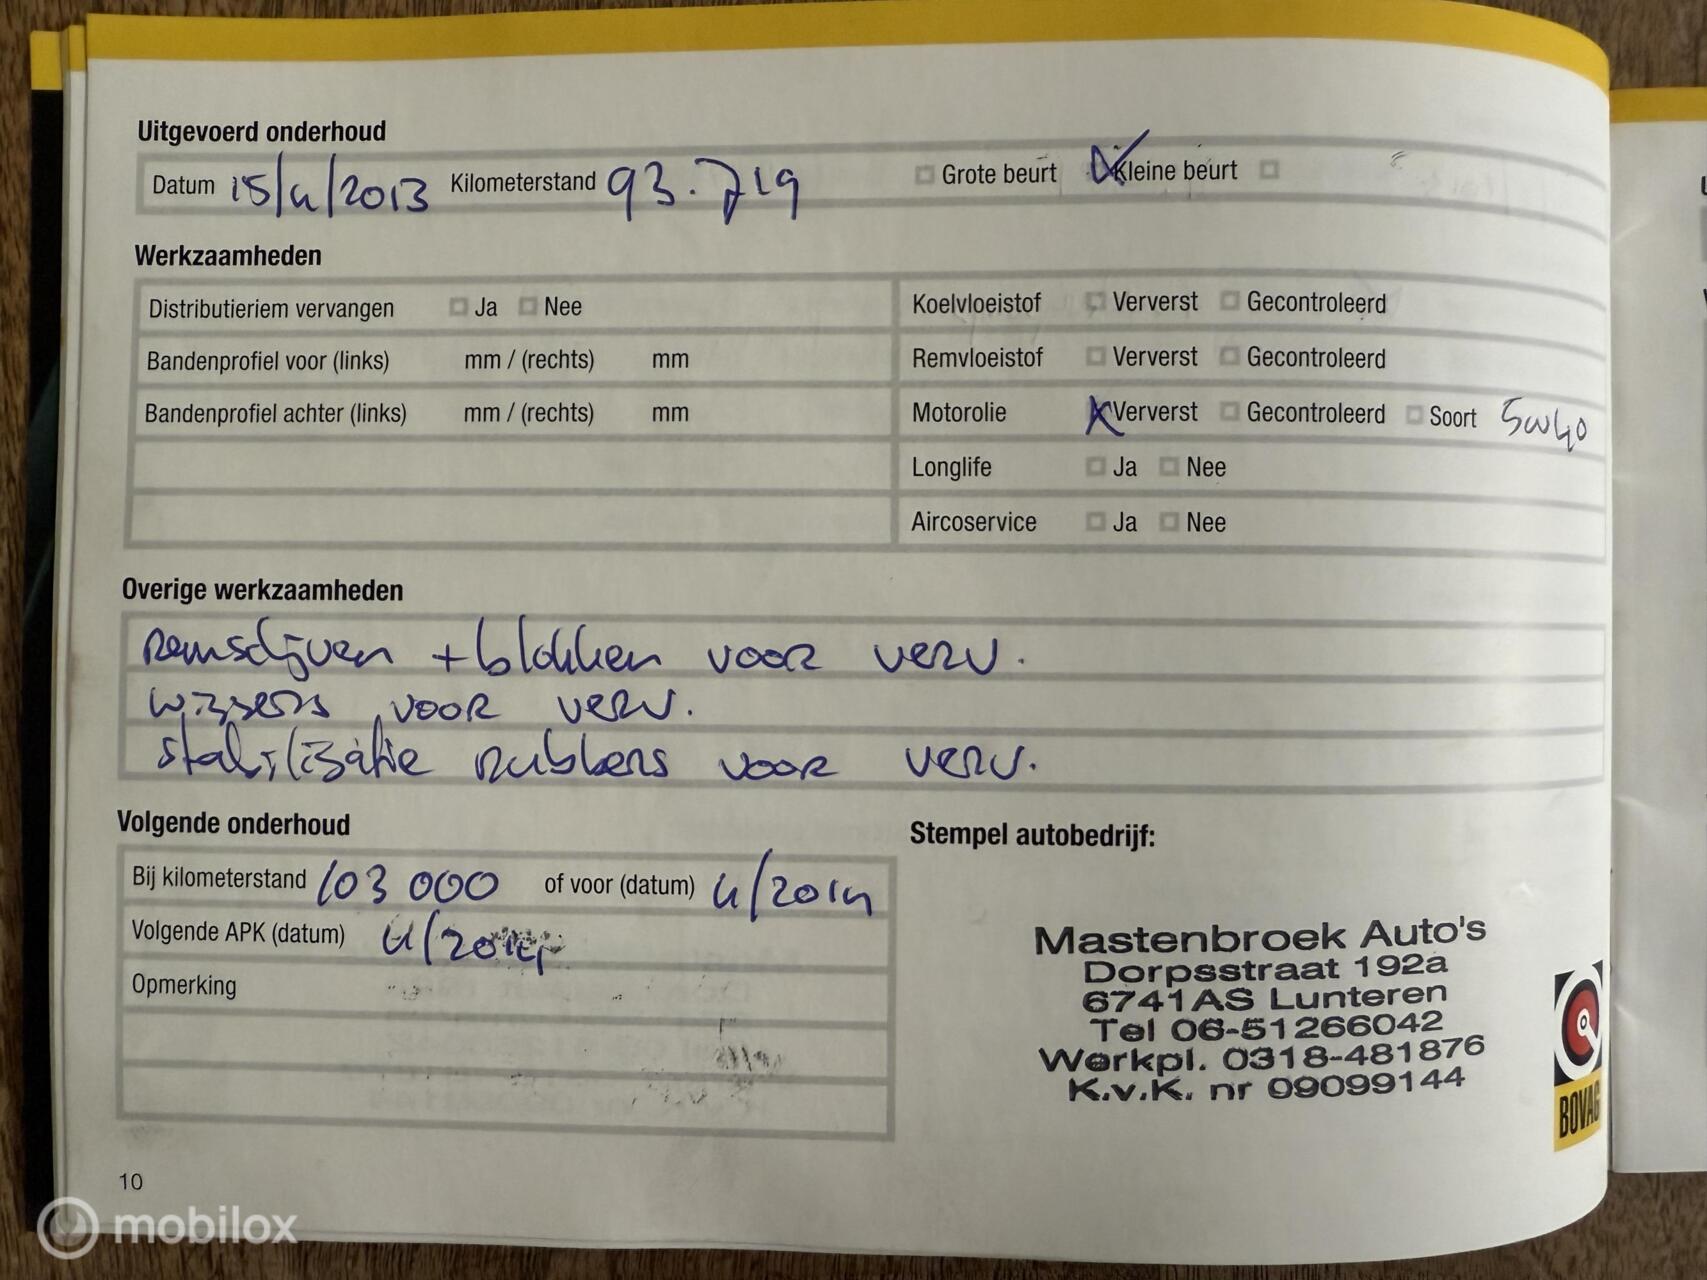 Uitgevoerd onderhoud
Datum 15/4/2013 Kilometerstand 93.719 Grote beurt Kleine beurt
Werkzaamheden
Distributieriem vervangen Ja Nee
Koelvloeistof Ververst Gecontroleerd
Bandenprofiel voor (links) mm / (rechts) mm
Remvloeistof Ververst Gecontroleerd
Bandenprofiel achter (links) mm / (rechts) mm
Motorolie Ververst Gecontroleerd Soort 5W40
Longlife Ja Nee
Aircoservice Ja Nee
Overige werkzaamheden
remschijven + blokken voor verv.
wissers voor verv.
stabilizatie rubbers voor verv.
Volgende onderhoud
Bij kilometerstand 103 000 of voor (datum) 4/2014
Volgende APK (datum) 4/2014
Opmerking
Stempel autobedrijf:
Mastenbroek Auto's
Dorpsstraat 192a
6741AS Lunteren
Tel 06-51266042
Werkpl. 0318-481876
K.v.K. nr 09099144
BOVAG
10
mobilox